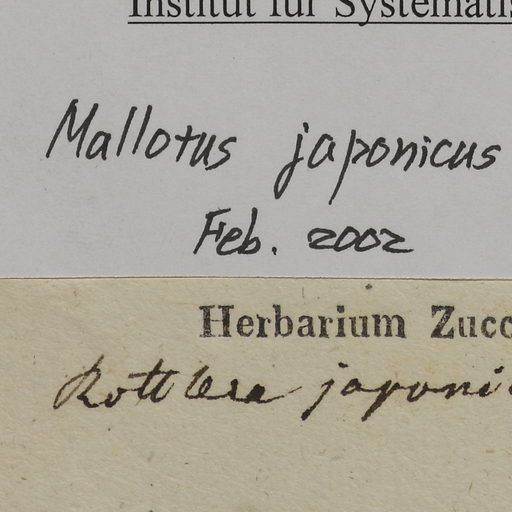 Institut für Systematis
Mallotus japonicus
Feb. 2002
Herbarium Zucc
Rottlera japoni